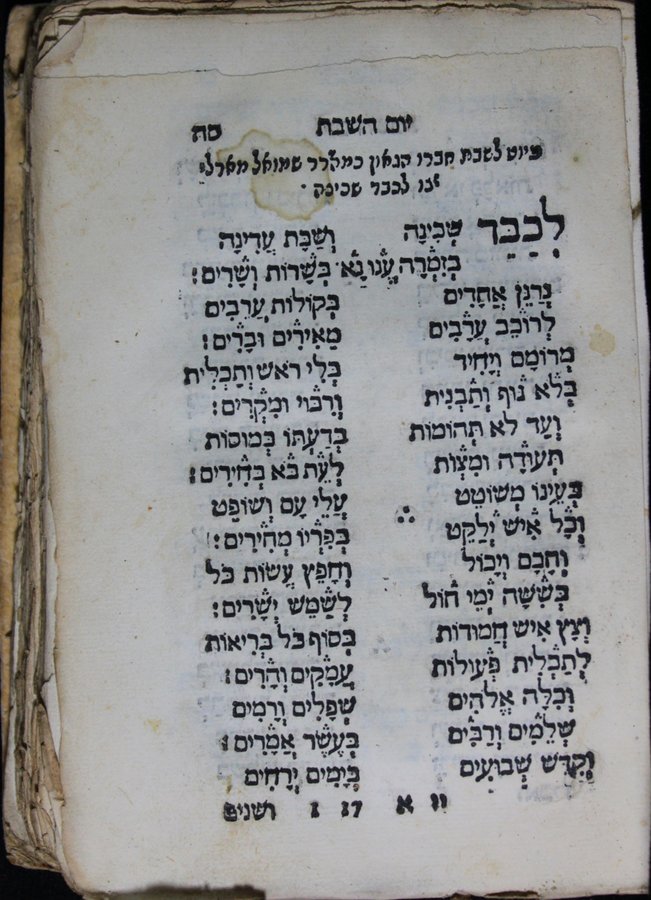 יום השבת סח
פיוט לשבת חברו הגאון כמהרר שמואל מארלי
זנו לכבד שכינה
לְכַבֵּד שְׁכִינָה וְשַׁבָּת עֲדִינָה
בְּזִמְרָה עֲנוּ נָא בְּשָׁרוֹת וְשָׁרִים׃
נְרַנֵּן אֲחָדִים בְּקוֹלוֹת עֲרֵבִים
לְרוֹכֵב עֲרָבִים מְאִירִים וּבָרִים׃
מְרוֹמָם וְיָחִיד בְּלִי רֹאשׁ וְתַכְלִית
בְּלֹא גוּף וְתַבְנִית וְרִבּוּי וּמִקְרִים׃
וְעַד לֹא תְּהוֹמוֹת בְּדַעְתּוֹ כְּמוּסוֹת
תְּעוּדָה וּמִצְוֹת לְעֵת בֹּא בְּחִירִים׃
בְּעֵינוֹ מְשׁוֹטֵט עֲלֵי עָם וְשׁוֹפֵט
וְכָל אִישׁ יְלַקֵּט בְּפִרְיוֹ מְהִירִים׃
וְחָכָם וְיָכוֹל וְחָפֵץ עֲשׂוֹת כֹּל
בְּשִׁשָּׁה יְמֵי חוֹל לְשַׁמֵּשׁ יְשָׁרִים׃
וְנָץ אִישׁ חֲמוּדוֹת בְּסוֹף כֹּל בְּרִיאוֹת
לְתַכְלִית פְּעוּלוֹת עֲמָקִים וְהָרִים׃
וְכִלָּה אֱלֹהִים שְׁפָלִים וְרָמִים
שְׁלֵמִים וְרַבִּים בְּעֶשֶׂר אֲמָרִים׃
וְקִדֵּשׁ שְׁבוּעִים בְּיָמִים יְרָחִים
יז א 17 1 ושנים